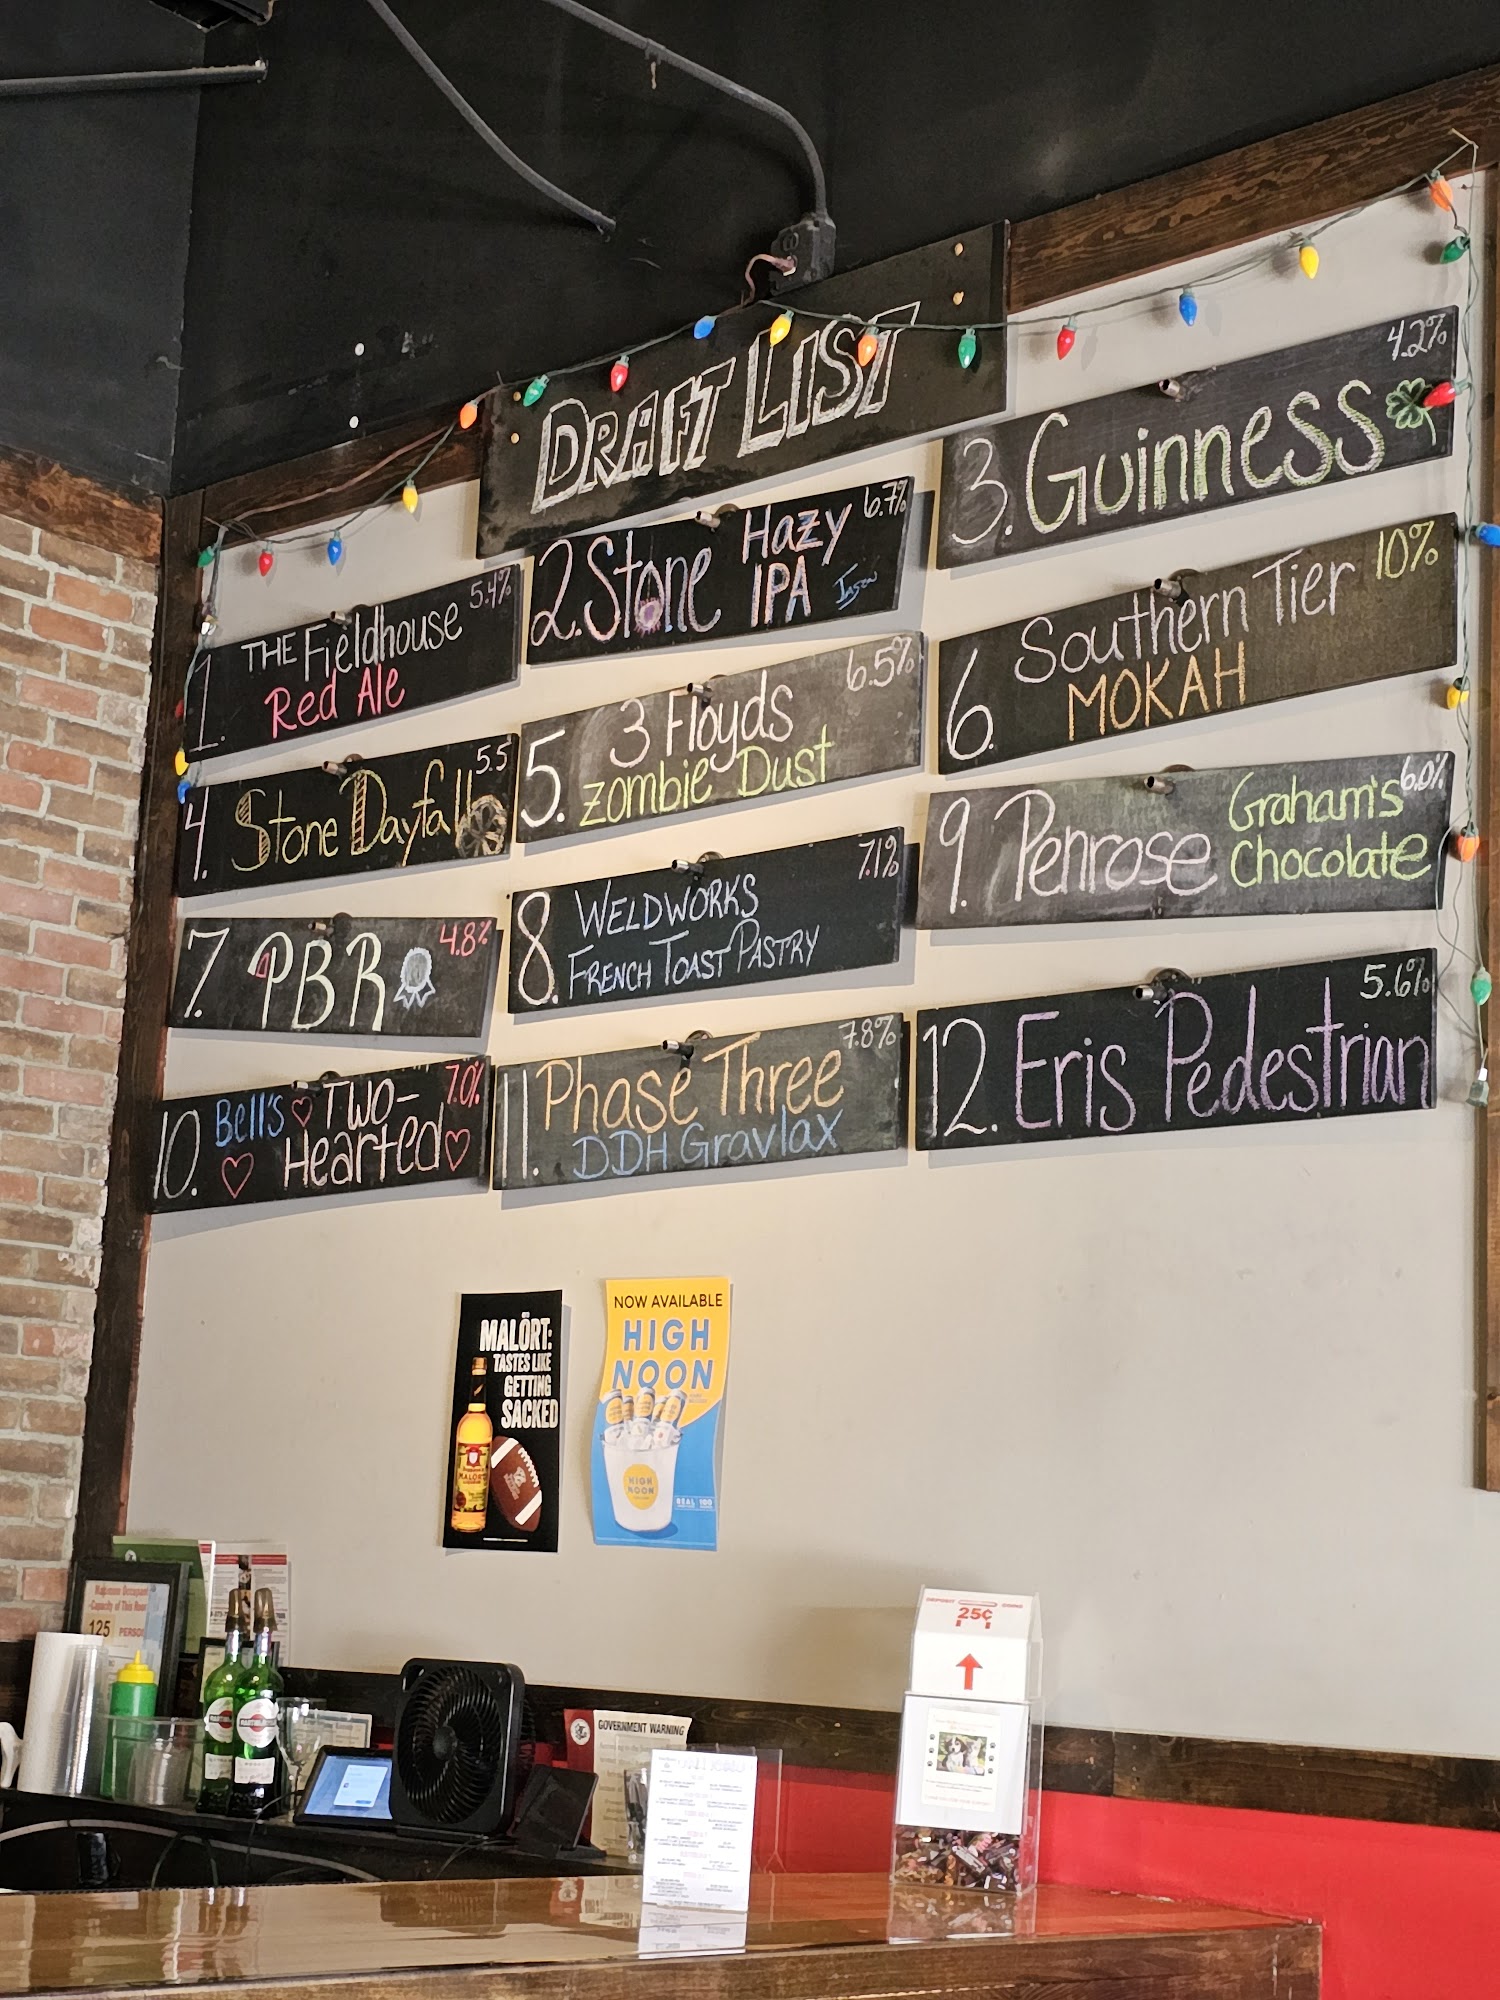 DRAFT LIST
1. THE Fieldhouse 5.4%
Red Ale
2. Stone Hazy 6.7%
IPA Jason
3. Guinness 4.2%
4. Stone Dayfall 5.5
5. 3 Floyds 6.5%
Zombie Dust
6. Southern Tier 10%
MOKAH
7. PBR 4.8%
8. WELDWORKS 7.1%
FRENCH TOAST PASTRY
9. Penrose Graham's 6.0%
Chocolate
10. Bell's Two- 7.0%
Hearted
11. Phase Three 7.8%
DDH Gravlax
12. Eris Pedestrian 5.6%
MALÖRT:
TASTES LIKE
GETTING
SACKED
MALORT
NOW AVAILABLE
HIGH
NOON
HIGH
NOON
REAL 100
Capacity of This Room
125 PERSO
MARTINI
GOVERNMENT WARNING
DEPOSIT COINS
25¢